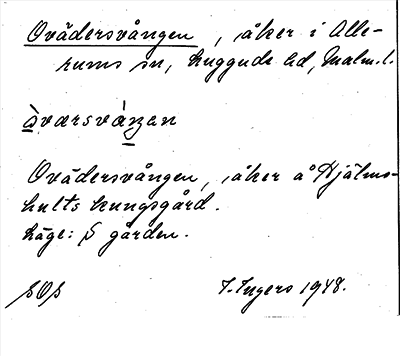 Ovädersvången, åker i Alle-
rums sn, Luggude hd, Malm. l.
òvæʀsváŋan
Ovädersvången, åker å Hjälms-
hults kungsgård.
Läge: S gården.
SOS I. Ingers 1948.